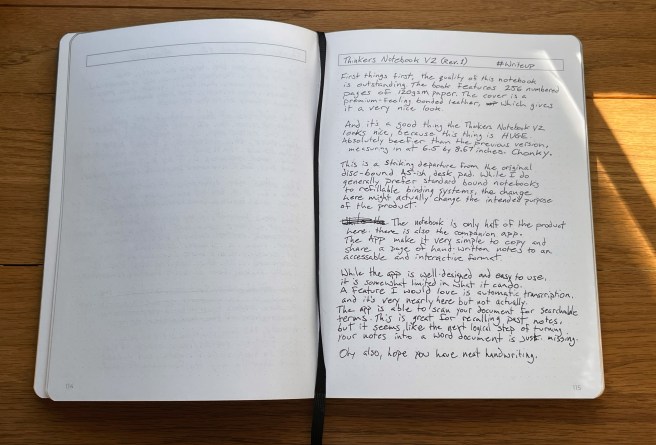 Thinkers Notebook V2 (Gen.1) #Writeup
First things first, the quality of this notebook
is outstanding. The book features 256 numbered
pages of 120gsm paper. The cover is a
premium-feeling bonded leather, which gives
it a very nice look.
And it's a good thing the Thinkers Notebook V2
looks nice, because this thing is HUGE.
Absolutely beefier than the previous version,
measuring in at 6.5 by 8.67 inches. Chonky.
This is a striking departure from the original
disc-bound A5-ish desk pad. While I do
generally prefer standard bound notebooks
to refillable binding systems, the change
here might actually change the intended purpose
of the product.
The notebook is only half of the product
here. there is also the companion app.
The App make it very simple to copy and
share a page of hand-written notes to an
accessable and interactive format.
While the app is well-designed and easy to use,
it is somewhat limited in what it can do.
A feature I would love is automatic transcription,
and it's very nearly here but not actually.
The app is able to scan your document for searchable
terms. This is great for recalling past notes,
but it seems like the next logical step of turning
your notes into a word document is just missing.
Oh, also, hope you have neat handwriting.
114
115